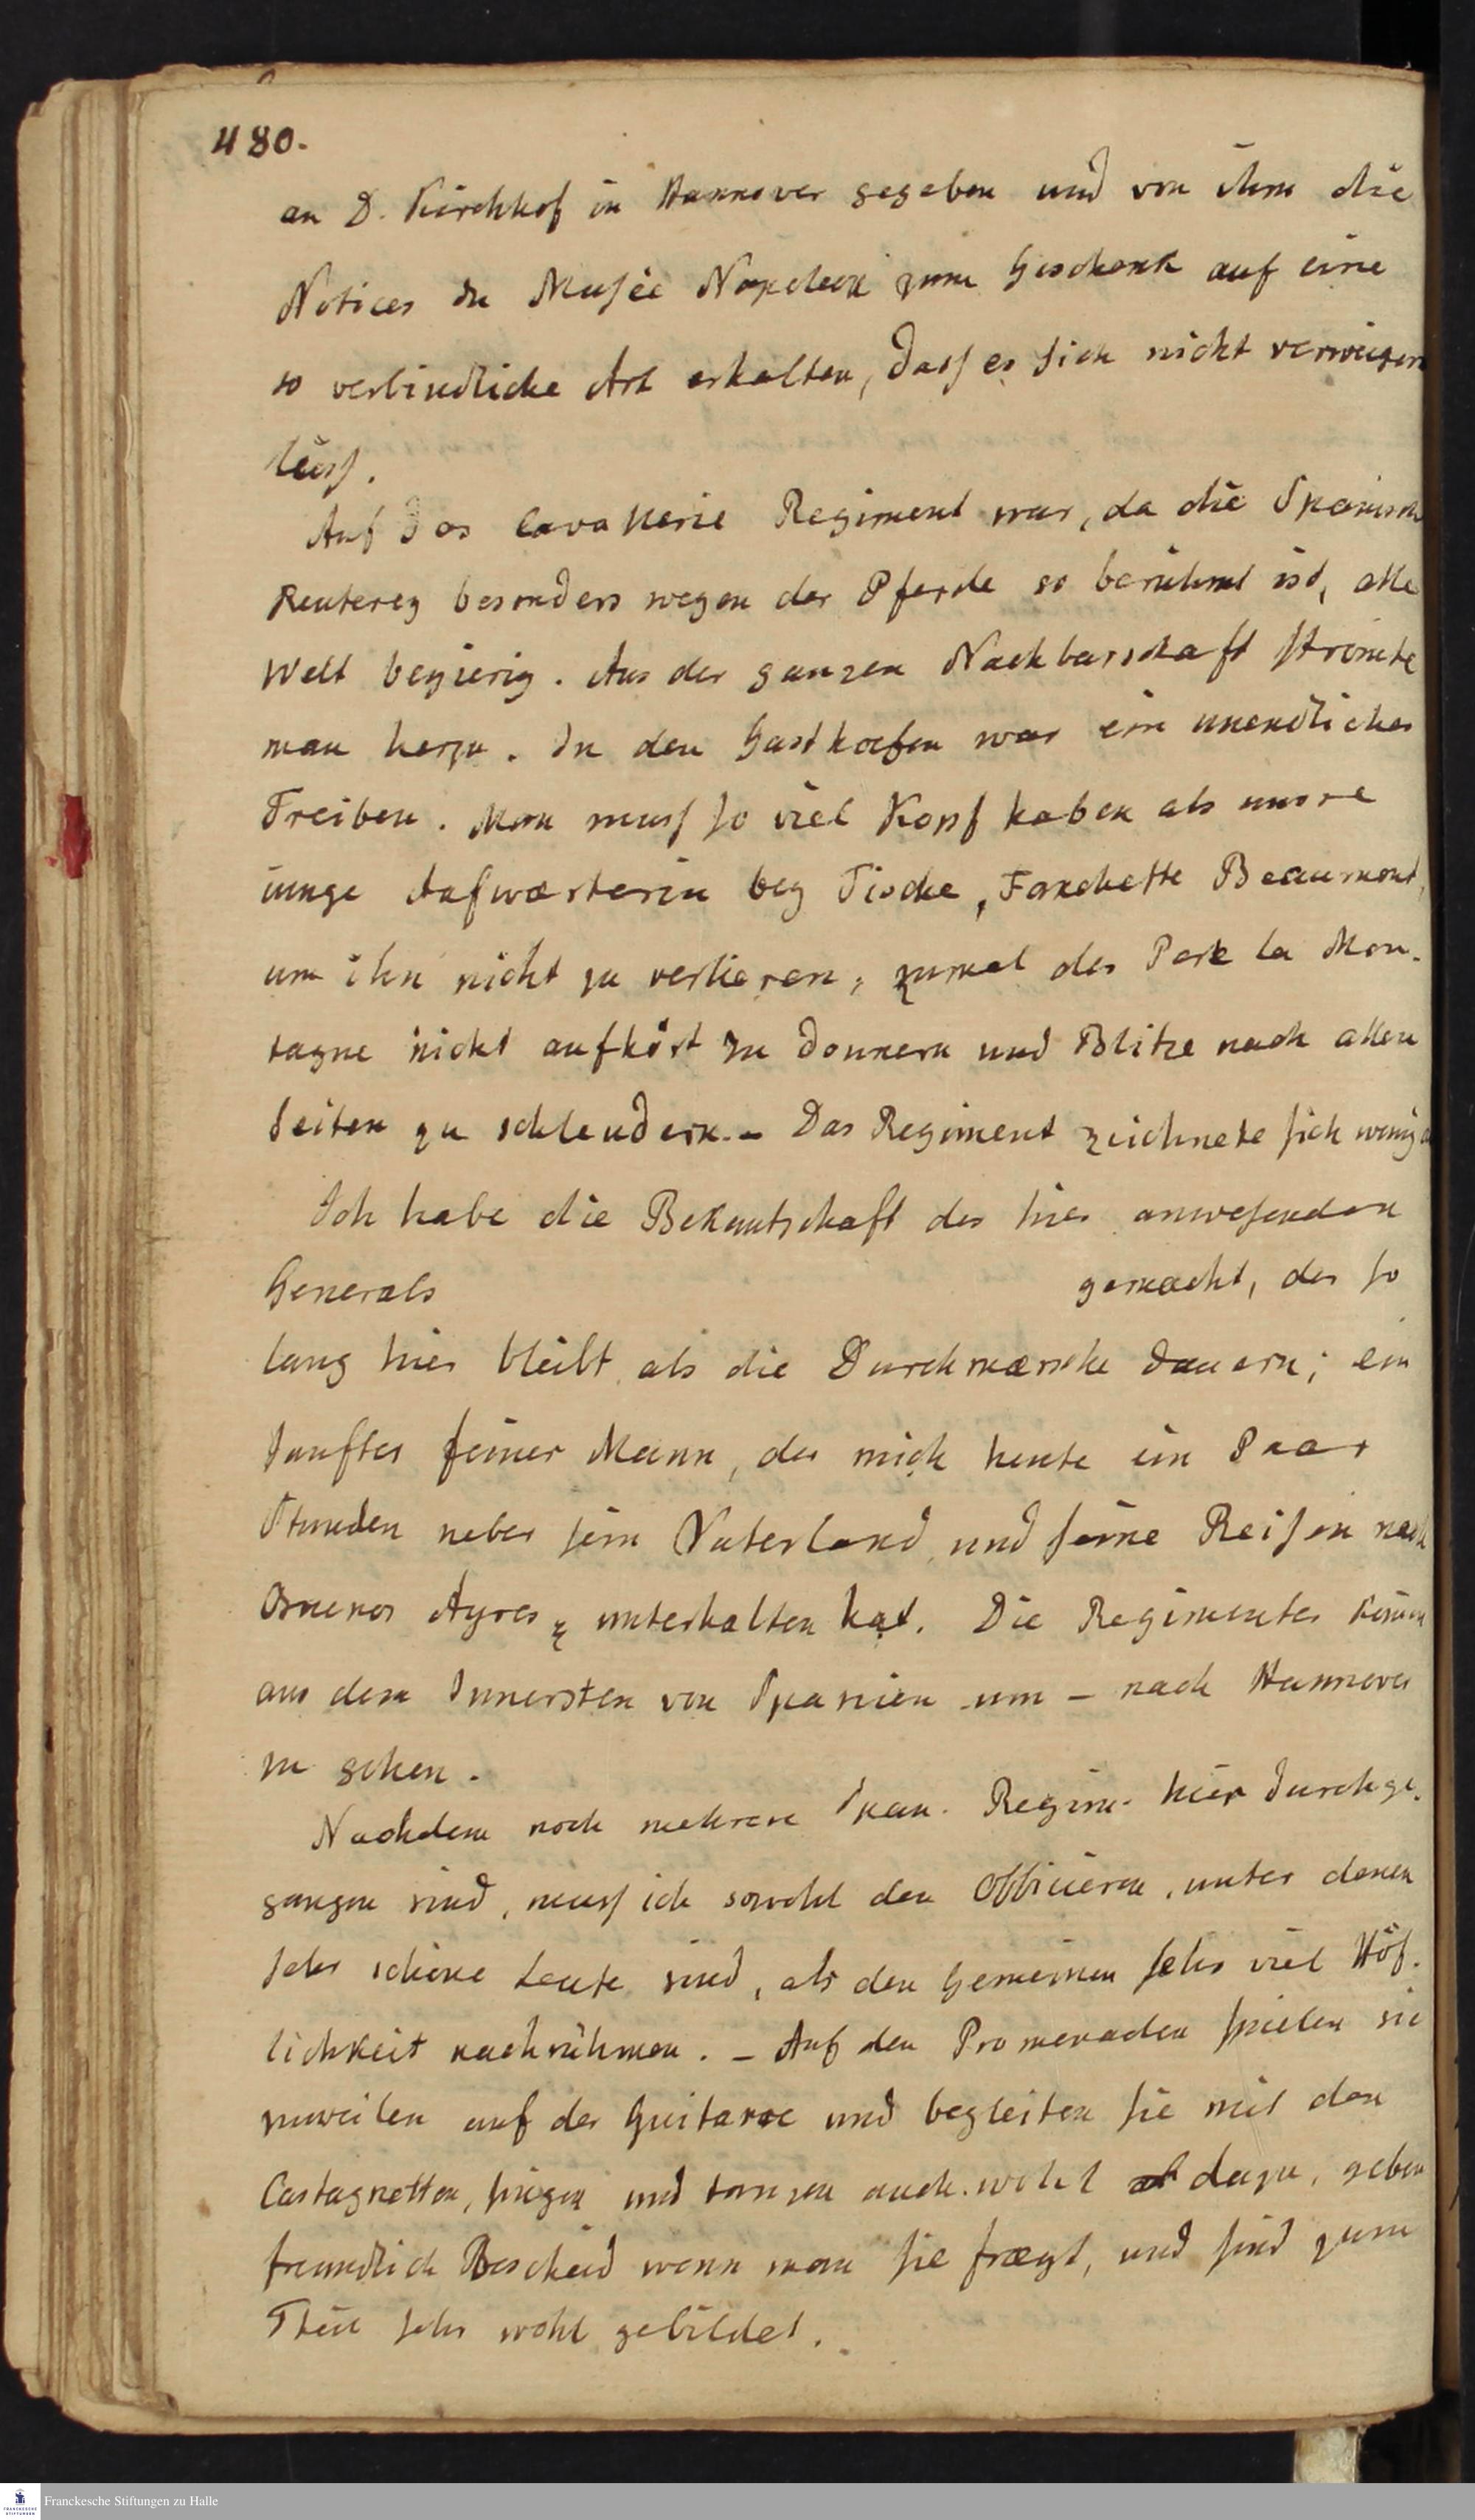 480.
an D. Kirchhof in Hannover gegeben und von ihm die
Notices du Musée Napoleon zum Geschenk auf eine
so verbindliche Art erhalten, dass es sich nicht verweigern
liess.
Auf das Cavallerie Regiment war, da die Spanisch
Reuterey besonders wegen der Pferde so berühmt ist, alle
Welt begierig. Aus der ganzen Nachbarschaft strömte
man herzu. In den Gasthoefen war ein unendliches
Treiben. Man muss so viel Kopf haben als unsre
iunge Aufwærterin bey Tische, Fanchette Beaumont,
um ihn nicht zu verlieren, zumal der Pere la Mon-
tagne nicht aufhört zu donnern und Blitze nach allen
Seiten zu schleudern. – Das Regiment zeichnete sich wenig
Ich habe die Bekantschaft des hier anwesenden
Generals gemacht, der so
lang hier bleibt als die Durchmærsche dauern; ein
sanfter feiner Mann, der mich heute ein Paar
Stunden ueber sein Vaterland und seine Reisen nach
Buenos Ayres unterhalten hat. Die Regimenter
aus dem Innersten von Spanien um – nach Hannover
zu gehen.
Nachdem noch mehrere Span. Regim. hier durchge-
gangen sind, muss ich sowohl den Officieren, unter denen
sehr schöne Leute sind, als den Gemeinen sehr viel Höf-
lichkeit nachrühmen. – Auf den Promenaden spielen sie
zuweilen auf der Guitarre und begleiten sie mit den
Castagnetten, singen und tanzen auch wohl dazu, geben
freundlich Bescheid wenn man sie frægt, und sind zum
Theil sehr wohl gebildet.
Franckesche Stiftungen zu Halle